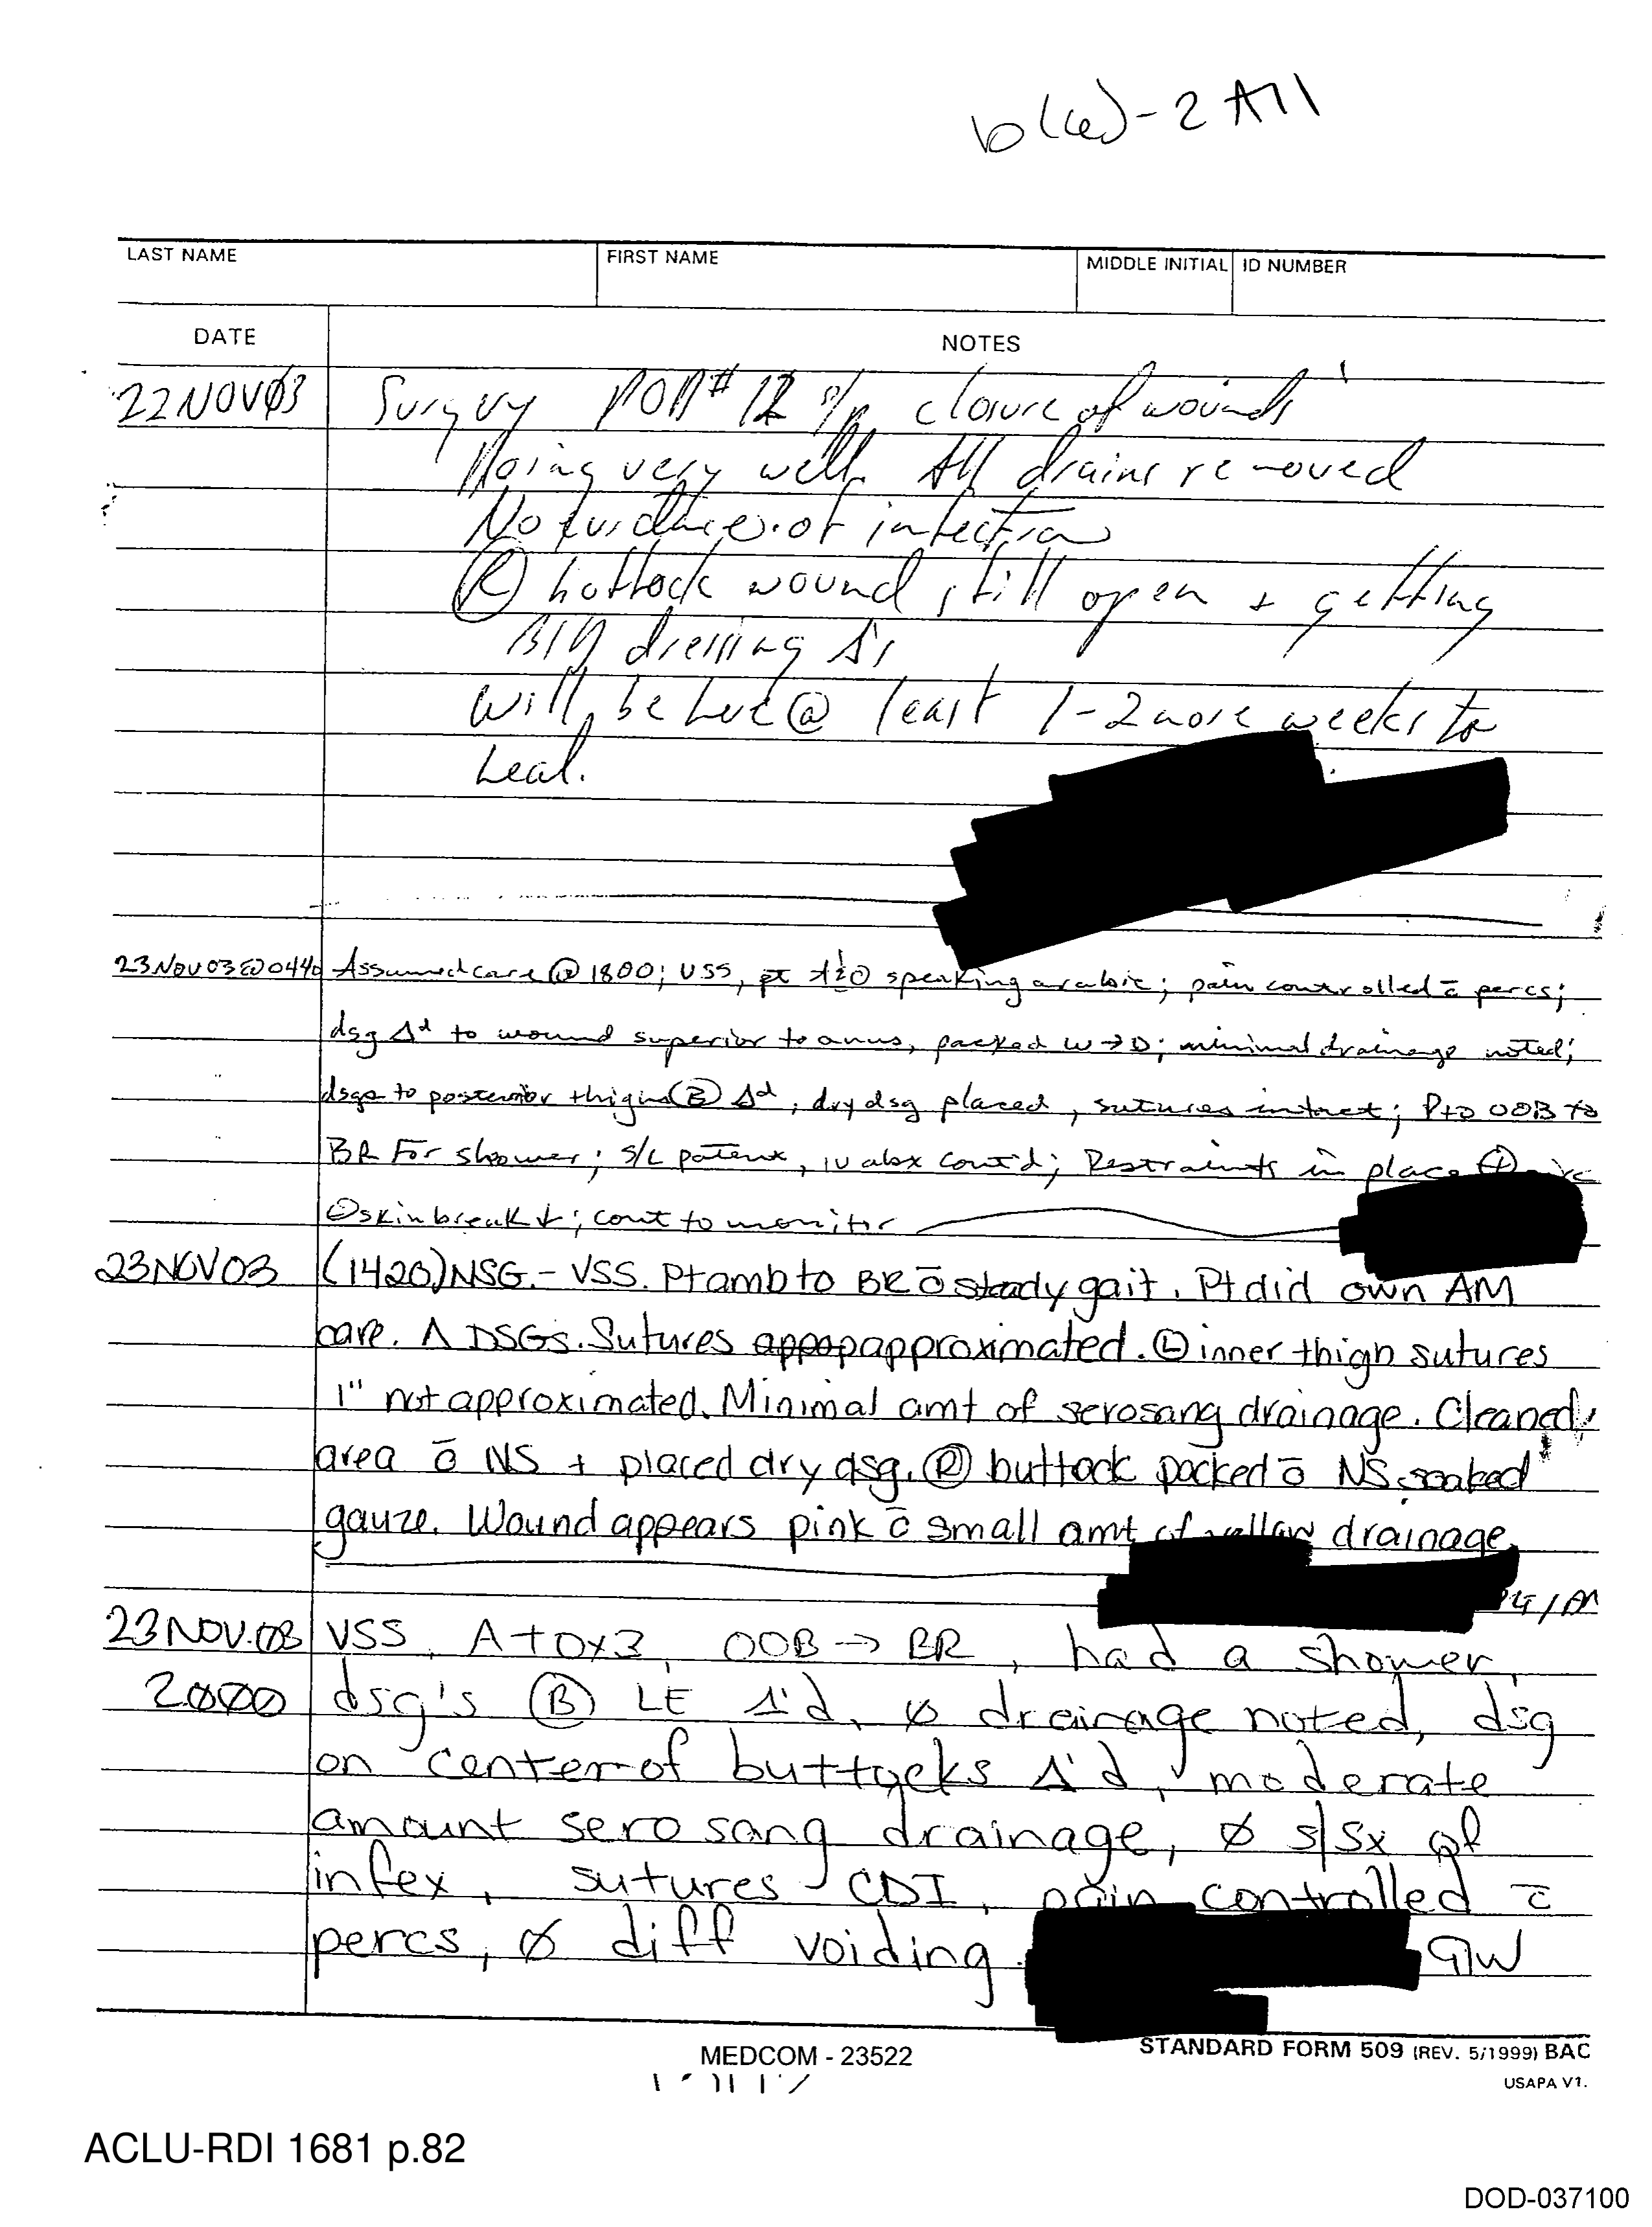 b(6)-2 All
LAST NAME FIRST NAME MIDDLE INITIAL ID NUMBER
DATE NOTES
22NOVØ3 Surgery POD# 12 s/p closure of wounds
Doing very well. All drains removed
No evidence of infection
Ⓡ buttock wound still open + getting
BID dressing Δ's
Will be here @ least 1-2 more weeks to
heal.
23NOV03@0440 Assumed care @ 1800; VSS, pt A+O speaking arabic; pain controlled c̄ percs;
dsg Δd to wound superior to anus, packed w→D; minimal drainage noted;
dsgs to posterior thighs Ⓑ Δd, dry dsg placed, sutures intact; Pt OOB to
BR For shower; S/L patent, IV abx cont'd; Restraints in place ⊕
⊖ skin break↓; cont to monitor
23NOV03 (1420) NSG.- VSS. Pt amb to BR c̄ steady gait. Pt did own AM
care. Δ DSGs. Sutures approximated. Ⓛ inner thigh sutures
1" not approximated. Minimal amt of serosang drainage. Cleaned
area c̄ NS + placed dry dsg. Ⓡ buttock packed c̄ NS soaked
gauze. Wound appears pink c̄ small amt of yellow drainage.
23NOV.03 VSS, A+Ox3, OOB → BR, had a shower,
2000 dsg's Ⓑ LE Δ'd, ø drainage noted, dsg
on center of buttocks Δ'd, moderate
amount serosang drainage, ø s/sx of
infex, sutures CDI, pain controlled c̄
percs, ø diff voiding 91W
MEDCOM - 23522
STANDARD FORM 509 (REV. 5/1999) BAC
USAPA V1.
ACLU-RDI 1681 p.82
DOD-037100